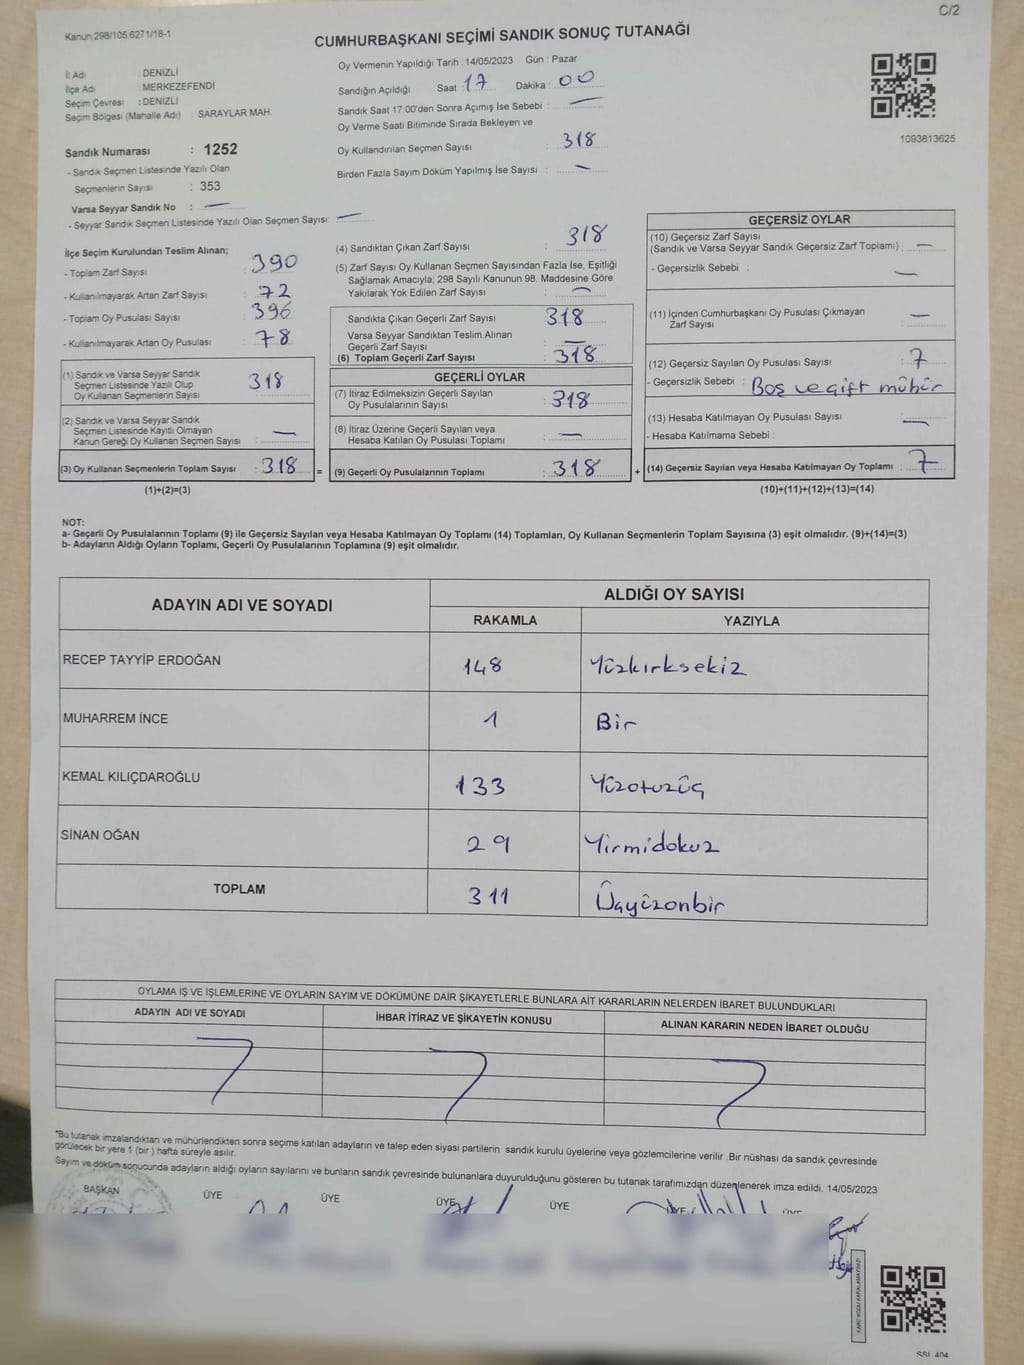 C/2
Kanun:298/105,6271/18-1
CUMHURBAŞKANI SEÇİMİ SANDIK SONUÇ TUTANAĞI
İl Adı : DENİZLİ
İlçe Adı : MERKEZEFENDİ
Seçim Çevresi : DENİZLİ
Seçim Bölgesi (Mahalle Adı) : SARAYLAR MAH.
Sandık Numarası : 1252
- Sandık Seçmen Listesinde Yazılı Olan
Seçmenlerin Sayısı : 353
Varsa Seyyar Sandık No : —
- Seyyar Sandık Seçmen Listesinde Yazılı Olan Seçmen Sayısı: —
Oy Vermenin Yapıldığı Tarih : 14/05/2023 Gün : Pazar
Sandığın Açıldığı Saat : 17 Dakika : 00
Sandık Saat 17:00'den Sonra Açımış İse Sebebi : —
Oy Verme Saati Bitiminde Sırada Bekleyen ve
Oy Kullandırılan Seçmen Sayısı : 318
Birden Fazla Sayım Döküm Yapılmış İse Sayısı : —
1093813625
İlçe Seçim Kurulundan Teslim Alınan;
- Toplam Zarf Sayısı : 390
- Kullanılmayarak Artan Zarf Sayısı : 72
- Toplam Oy Pusulası Sayısı : 396
- Kullanılmayarak Artan Oy Pusulası : 78
(1) Sandık ve Varsa Seyyar Sandık
Seçmen Listesinde Yazılı Olup
Oy Kullanan Seçmenlerin Sayısı : 318
(2) Sandık ve Varsa Seyyar Sandık
Seçmen Listesinde Kayıtlı Olmayan
Kanun Gereği Oy Kullanan Seçmen Sayısı : —
(3) Oy Kullanan Seçmenlerin Toplam Sayısı : 318 =
(1)+(2)=(3)
(4) Sandıktan Çıkan Zarf Sayısı : 318
(5) Zarf Sayısı Oy Kullanan Seçmen Sayısından Fazla İse, Eşitliği
Sağlamak Amacıyla; 298 Sayılı Kanunun 98. Maddesine Göre
Yakılarak Yok Edilen Zarf Sayısı : —
Sandıkta Çıkan Geçerli Zarf Sayısı : 318
Varsa Seyyar Sandıktan Teslim Alınan
Geçerli Zarf Sayısı : —
(6) Toplam Geçerli Zarf Sayısı : 318
GEÇERLİ OYLAR
(7) İtiraz Edilmeksizin Geçerli Sayılan
Oy Pusulalarının Sayısı : 318
(8) İtiraz Üzerine Geçerli Sayılan veya
Hesaba Katılan Oy Pusulası Toplamı : —
(9) Geçerli Oy Pusulalarının Toplamı : 318 +
GEÇERSİZ OYLAR
(10) Geçersiz Zarf Sayısı
(Sandık ve Varsa Seyyar Sandık Geçersiz Zarf Toplamı) : —
- Geçersizlik Sebebi : —
(11) İçinden Cumhurbaşkanı Oy Pusulası Çıkmayan
Zarf Sayısı : —
(12) Geçersiz Sayılan Oy Pusulası Sayısı : 7
- Geçersizlik Sebebi : Boş ve çift mühür
(13) Hesaba Katılmayan Oy Pusulası Sayısı : —
- Hesaba Katılmama Sebebi :
(14) Geçersiz Sayılan veya Hesaba Katılmayan Oy Toplamı : 7
(10)+(11)+(12)+(13)=(14)
NOT:
a- Geçerli Oy Pusulalarının Toplamı (9) ile Geçersiz Sayılan veya Hesaba Katılmayan Oy Toplamı (14) Toplamları, Oy Kullanan Seçmenlerin Toplam Sayısına (3) eşit olmalıdır. (9)+(14)=(3)
b- Adayların Aldığı Oyların Toplamı, Geçerli Oy Pusulalarının Toplamına (9) eşit olmalıdır.
ADAYIN ADI VE SOYADI ALDIĞI OY SAYISI
RAKAMLA YAZIYLA
RECEP TAYYİP ERDOĞAN 148 Yüzkırksekiz
MUHARREM İNCE 1 Bir
KEMAL KILIÇDAROĞLU 133 Yüzotuzüç
SİNAN OĞAN 29 Yirmidokuz
TOPLAM 311 Üçyüzonbir
OYLAMA İŞ VE İŞLEMLERİNE VE OYLARIN SAYIM VE DÖKÜMÜNE DAİR ŞİKAYETLERLE BUNLARA AİT KARARLARIN NELERDEN İBARET BULUNDUKLARI
ADAYIN ADI VE SOYADI İHBAR İTİRAZ VE ŞİKAYETİN KONUSU ALINAN KARARIN NEDEN İBARET OLDUĞU
"Bu tutanak imzalandıktan ve mühürlendikten sonra seçime katılan adayların ve talep eden siyasi partilerin sandık kurulu üyelerine veya gözlemcilerine verilir. Bir nüshası da sandık çevresinde
görülecek bir yere 1 (bir) hafta süreyle asılır.
Sayım ve döküm sonucunda adayların aldığı oyların sayılarını ve bunların sandık çevresinde bulunanlara duyurulduğunu gösteren bu tutanak tarafımızdan düzenlenerek imza edildi. 14/05/2023
BAŞKAN ÜYE ÜYE ÜYE ÜYE ÜYE ÜYE
KARE KODU KARALAMAYINIZ!